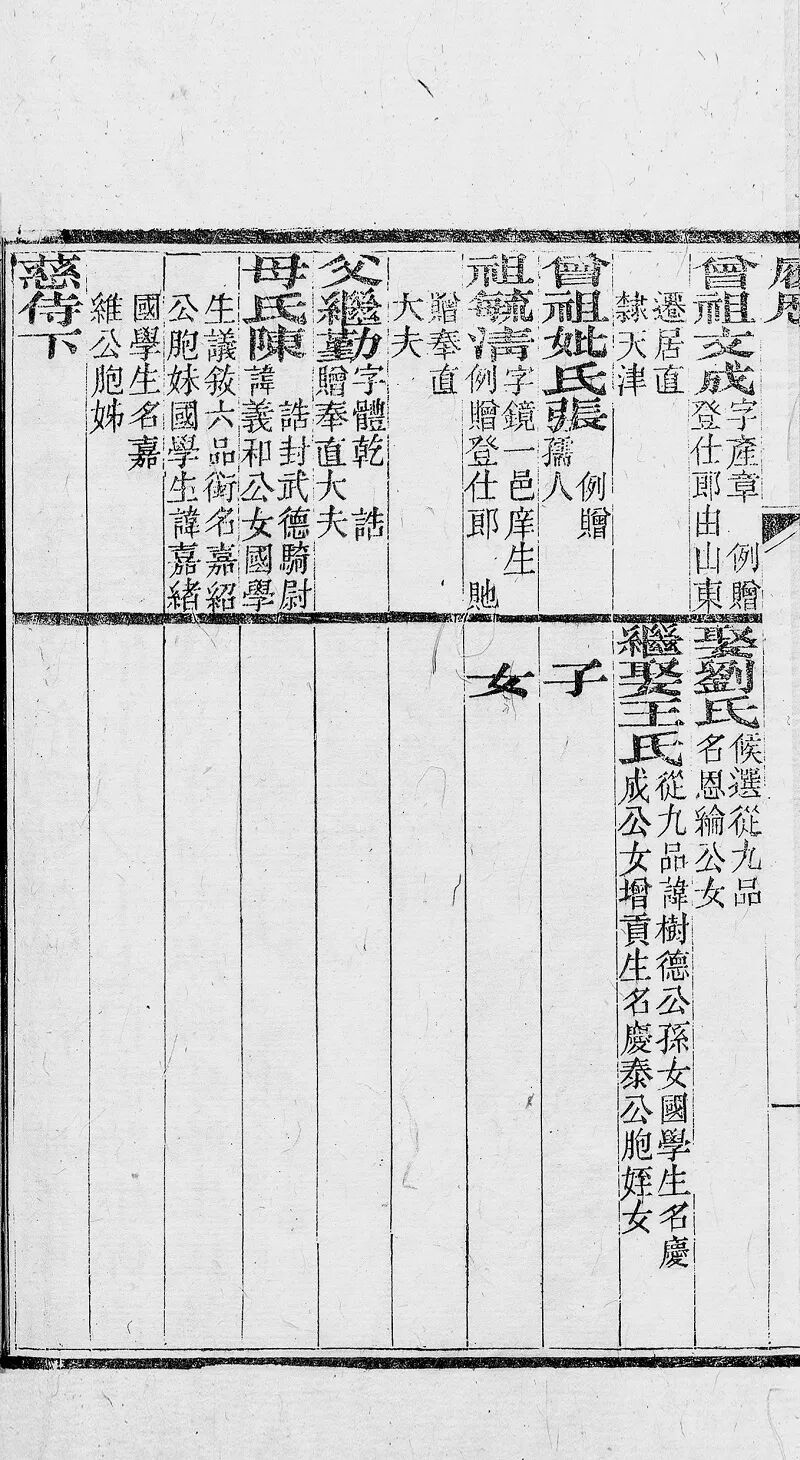 履歷
曾祖文成字產章 例贈
登仕郎由山東
遷居直
隸天津
曾祖妣氏張 例贈
孺人
祖毓清字鏡一邑庠生
例贈登仕郎 貤
贈奉直
大夫
父繼勤字體乾 誥
贈奉直大夫
母氏陳 誥封武德騎尉
諱義和公女國學
生議敘六品銜名嘉紹
公胞妹國學生諱嘉緒
國學生名嘉
維公胞姊
慈侍下
娶劉氏候選從九品
名恩綸公女
繼娶王氏從九品諱樹德公孫女國學生名慶
成公女增貢生名慶泰公胞姪女
子
女